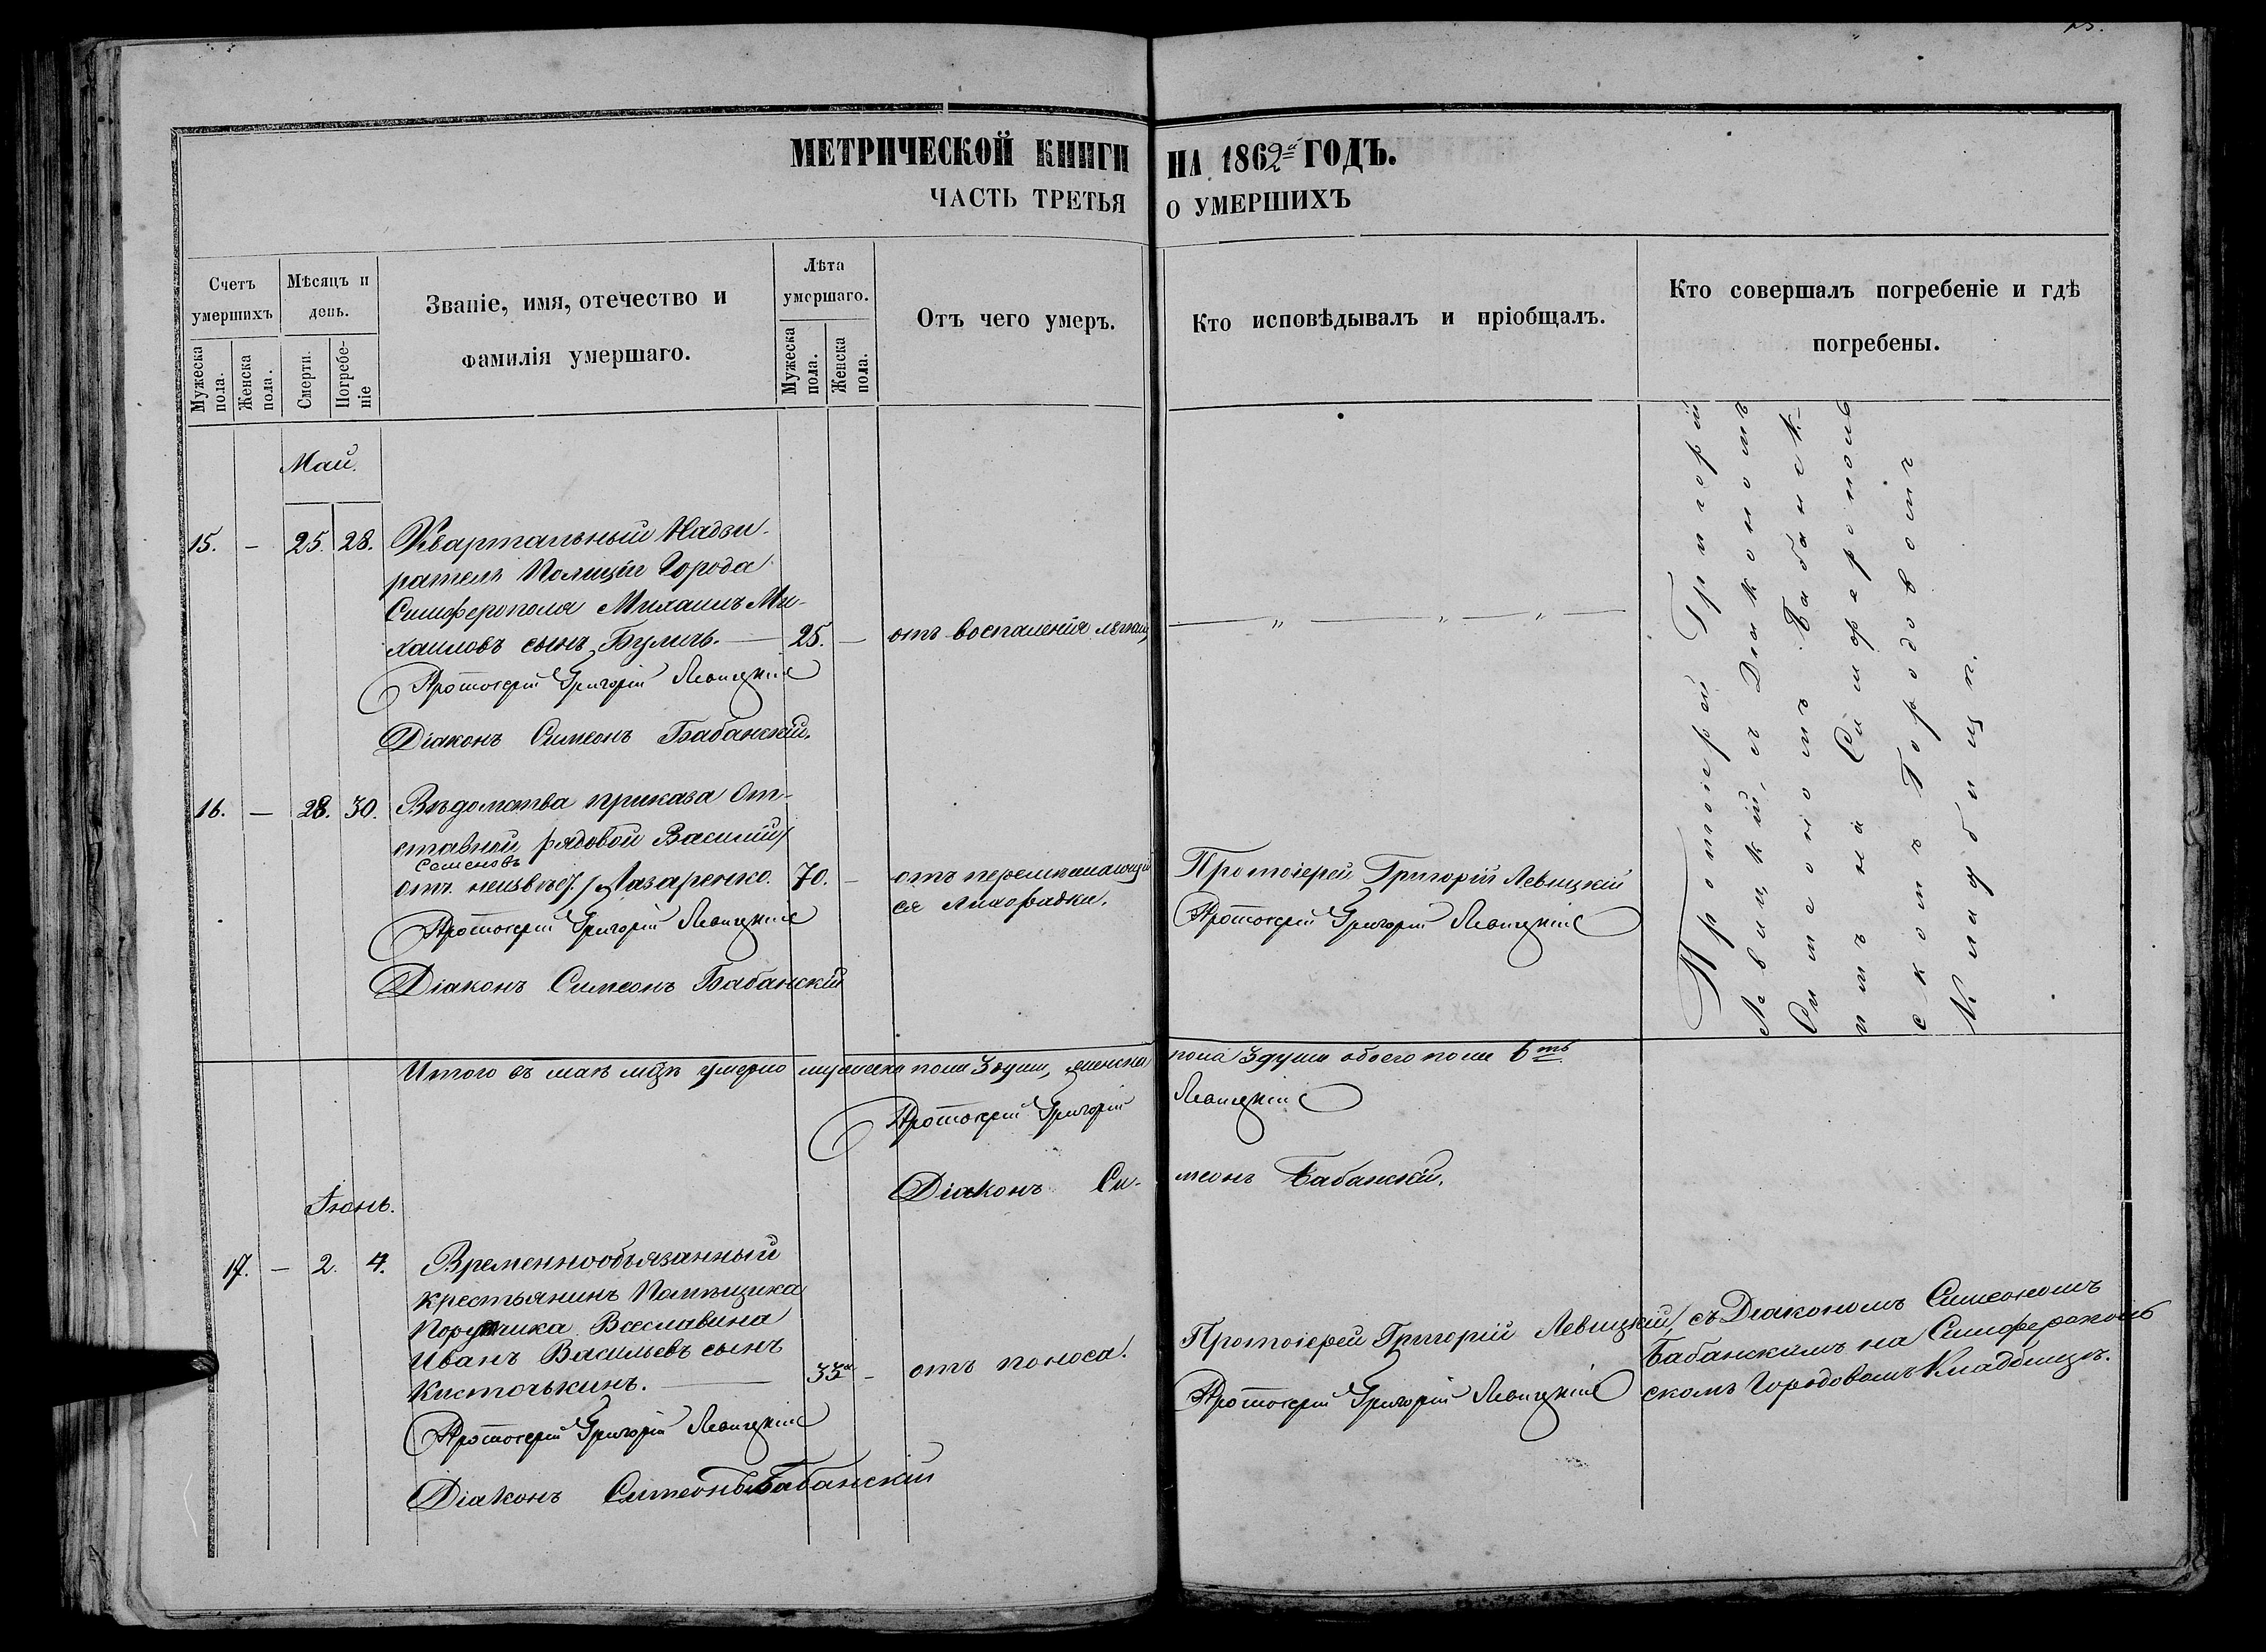 МЕТРИЧЕСКОЙ КНИГИ НА 1862й ГОДЪ.
ЧАСТЬ ТРЕТЬЯ О УМЕРШИХЪ
Счетъ умершихъ
Мужеска пола.
Женска пола.
Мѣсяцъ и день.
Смерти.
Погребеніе
Званіе, имя, отечество и
фамилія умершаго.
Лѣта умершаго.
Мужеска пола.
Женска пола.
Отъ чего умеръ.
Кто исповѣдывалъ и пріобщалъ.
Кто совершалъ погребеніе и гдѣ
погребены.
Май.
15. — 25. 28. Квартальный Надзи-
ратель Полиціи Города
Симферополя Михаилъ Ми-
хаиловъ сынъ Буличъ. — 25. — отъ воспаленія легкихъ — „ — „ — „ —
Протоіерей Григорій Левицкій
Діаконъ Симеонъ Бабанскій.
16. — 28. 30. Вѣдомства приказа От-
ставной рядовой Василій
Семеновъ
отч. неизвѣс./ Лазаренко. 70. — отъ перемежающей
ся лихорадки.
Протоіерей Григорій Левицкій
Протоіерей Григорій Левицкій
Протоіерей Григорій Левицкій
Діаконъ Симеонъ Бабанскій
Протоіерей Григорій
Левицкій, съ Діакономъ
Симеономъ Бабанск-
имъ на Симферополь
скомъ Городовомъ
Кладбищѣ.
Итого въ маѣ мцѣ умерло мужеска пола 3 души, женска пола 3 души обоего пола 6ть
Протоіерей Григорій Левицкій
Діаконъ Симеонъ Бабанскій.
Іюнь.
17. — 2. 4. Временнообязанный
крестьянинъ Помѣщика
Поручика Всеславина
Иванъ Васильевъ сынъ
Кисточькинъ. — 33 — отъ поноса.
Протоіерей Григорій Левицкій
Діаконъ Симеонъ Бабанскій
Протоіерей Григорій Левицкій, съ Діакономъ Симеономъ
Бабанскимъ на Симферополь
скомъ Городовомъ Кладбищѣ.
Протоіерей Григорій Левицкій